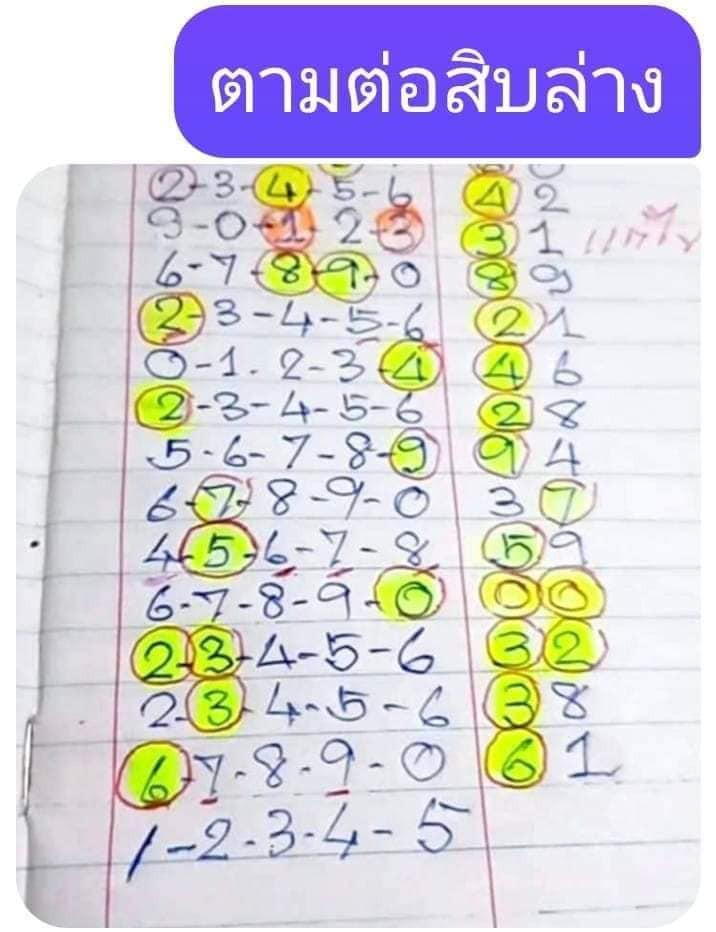 ตามต่อสิบล่าง
2-3-4-5-6 42
9-0-1-2-3 31 แก้ไข
6-7-8-9-0 89
2-3-4-5-6 21
0-1-2-3-4 46
2-3-4-5-6 28
5-6-7-8-9 94
6-7-8-9-0 37
4-5-6-7-8 59
6-7-8-9-0 00
2-3-4-5-6 32
2-3-4-5-6 38
6-7-8-9-0 61
1-2-3-4-5